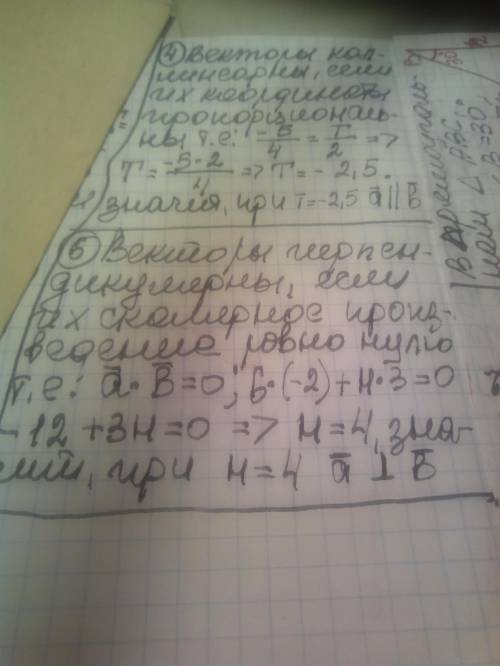 ④ Векторы кол-
линеарны, если
их координаты
пропорциональ-
ны т.е: -5/4 = T/2 =>
T = -5·2/4 => T = - 2,5.
значит, при T=-2,5 a̅ || b̅
⑤ Векторы перпен-
дикулярны, если
их скалярное произ-
ведение равно нулю
т.е: a̅·b̅=0; 6·(-2)+H·3=0
-12+3H=0 => H=4, зна-
чит, при H=4 a̅ ⊥ b̅
В прямоуголь-
ном △ ABC
B=30